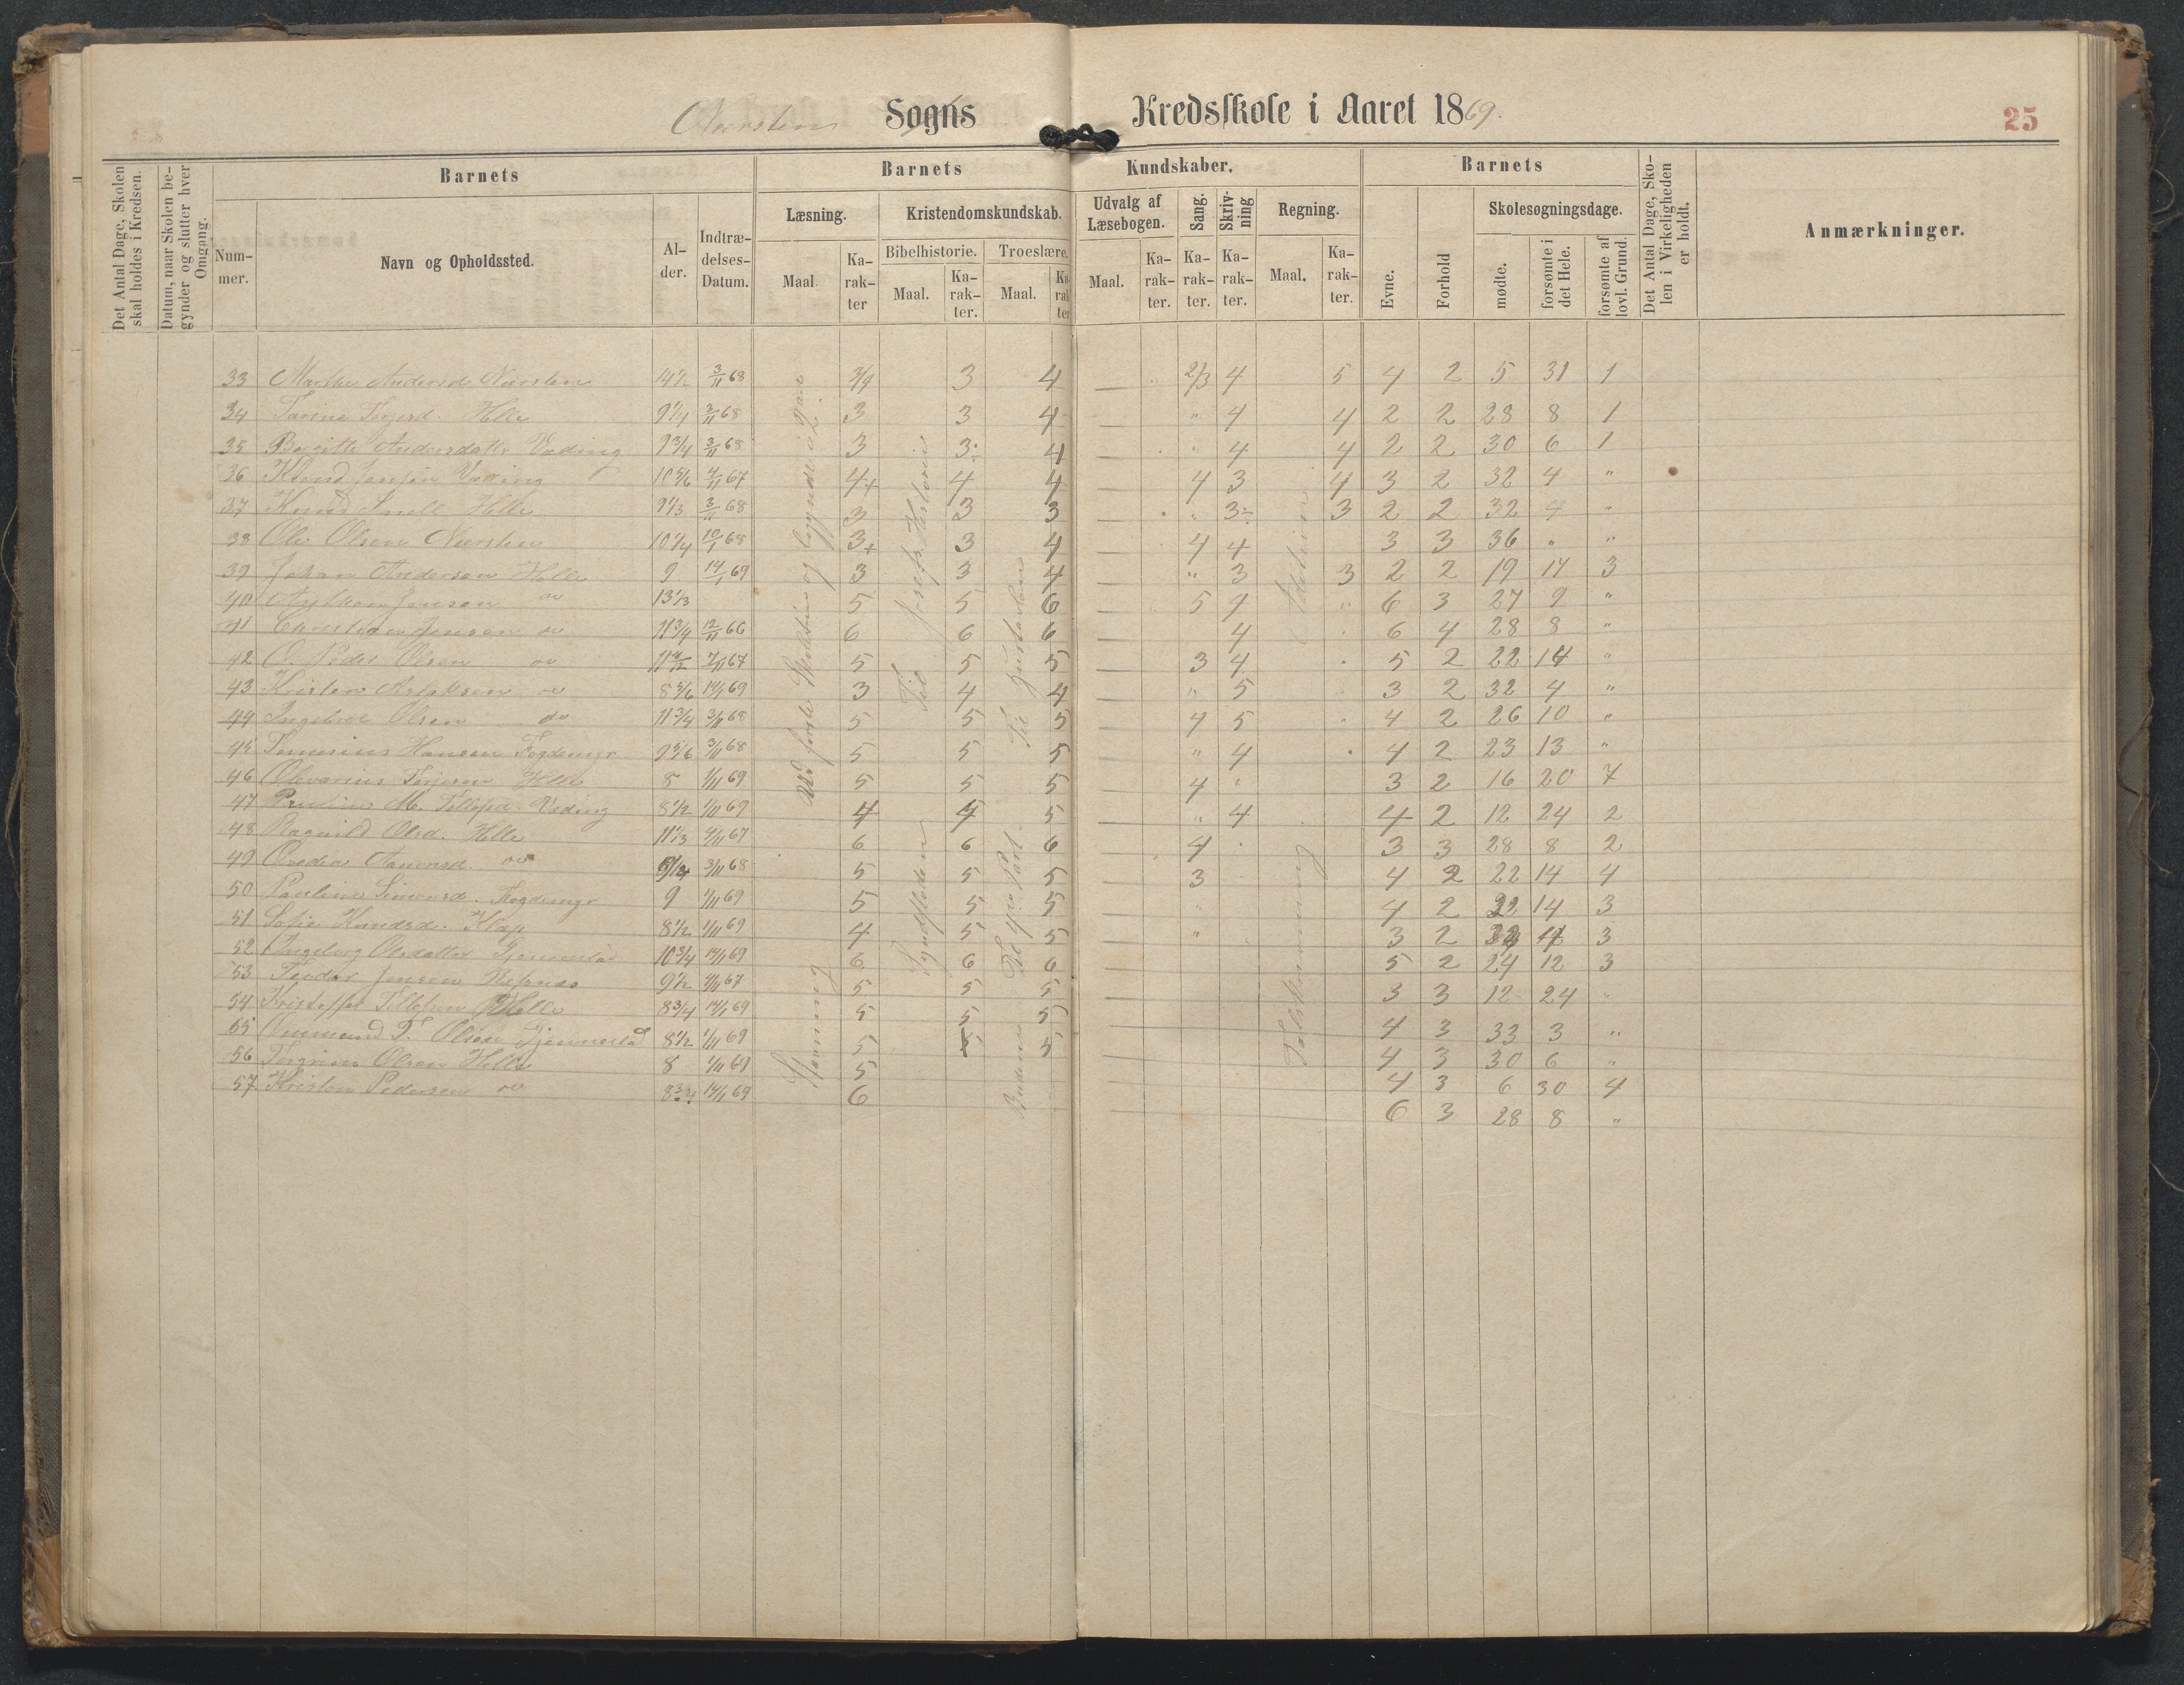 Nærsten Sogns Kredsskole i Aaret 1869.
25
Det Antal Dage, Skolen skal holdes i Kredsen.
Datum, naar Skolen begynder og slutter hver Omgang.
Barnets
Nummer.
Navn og Opholdssted.
Alder.
Indtrædelses-Datum.
Barnets Kundskaber.
Læsning.
Maal.
Karakter
Kristendomskundskab.
Bibelhistorie.
Maal.
Karakter.
Troeslære.
Maal.
Karakter
Udvalg af Læsebogen.
Maal.
Karakter.
Sang.
Karakter.
Skrivning
Karakter.
Regning.
Maal.
Karakter.
Barnets
Evne.
Forhold
Skolesøgningsdage.
mødte.
forsømte i det Hele.
forsømte af lovl. Grund.
Det Antal Dage, Skolen i Virkeligheden er holdt.
Anmærkninger.
33 Marthe Andersd Nærsten 14½ 3/11 68 3/4 3 4 2/3 4 5 4 2 5 31 1
34 Tarine Helle 9¼ 3/11 68 3 3 4 " 4 4 2 2 28 8 1
35 Bergitte Andersdatter Væding 9¾ 3/11 68 3 3 4 " 4 4 2 2 30 6 1
36 Knud Jensen Væding 10 5/6 4/11 67 4+ 4 4 4 3 4 3 2 32 4 "
37 Knud Helle 9⅓ 3/11 68 3 3 3 " 3 3 2 2 32 4 "
38 Ole Olsen Nærsten 10¼ 10/1 68 3+ 3 4 4 4 3 3 36 " "
39 Johan Andersen Helle 9 14/1 69 3 3 4 " 3 3 2 2 19 17 3
40 Jensen do 13⅓ 5 5 6 5 4 " 6 3 27 9 "
41 Christian Jensen do 11¾ 12/11 66 6 6 6 4 6 4 28 8 "
42 O. Peder Olsen do 7/11 67 5 5 5 3 4 5 2 22 14 "
43 Kristen Aslaksen do 8 5/6 14/1 69 3 4 4 " 5 3 2 32 4 "
44 Ingebret Olsen do 11¾ 3/11 68 5 5 5 4 5 4 2 26 10 "
45 Hansen Fogdemyr 9 5/6 3/11 68 5 5 5 " 4 4 2 23 13 "
46 Olevarius Terjesen Helle 8 1/11 69 5 5 5 4 3 2 16 20 7
47 Pauline M. Tellefsd. Væding 8½ 1/11 69 4 4 5 " 4 4 2 12 24 2
48 Ragnild Olsd. Helle 11⅓ 4/11 67 6 6 6 4 3 3 28 8 2
49 Ovedia Aanonsd. do 3/11 68 5 5 5 3 4 2 22 14 4
50 Pauline Simonsd. Fogdemyr 9 1/11 69 5 5 5 " 4 2 22 14 3
51 Sofie Knudsd. Klap 8½ 1/11 69 4 5 5 " 3 2 3
52 Ingeborg Olsdatter Tjennerlad 10¾ 14/1 69 6 6 6 5 2 24 12 3
53 Teodor Jensen Refsnæs 9½ 4/11 67 5 5 5 3 3 12 24 "
54 Kristoffer Tellefsen Helle 8¾ 14/1 69 5 5 5 4 3 33 3 "
55 T. Olsen Tjennerlad 8½ 1/11 69 5 5 5 4 3 30 6 "
56 Torgrim Olsen Helle 8 1/11 69 5 4 3 6 30 4
57 Kristen Pedersen do 8¾ 14/1 69 6 6 3 28 8 "
Til Josefs Historie
Til Syndfloden
Til
Addition
Talskrivning
Stavning